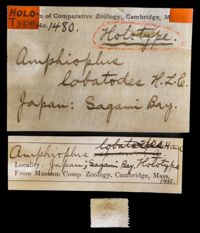 HOLO
TYPE
m of Comparative Zoölogy, Cambridge, M
No. 1480. Holotype.
Amphioplus
lobatodes H.L.C.
Japan: Sagami Bay.
Amphioplus lobatodes H.L.C.
Locality: Japan; Sagami Bay, Holotype
From Museum Comp. Zoology, Cambridge, Mass.
1480.